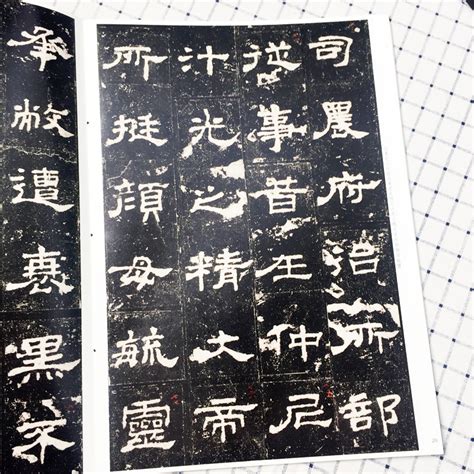 司農府治所部
從事昔在仲尼
汁光之精大帝
所挺顏母毓靈
承敝遭衰黑不